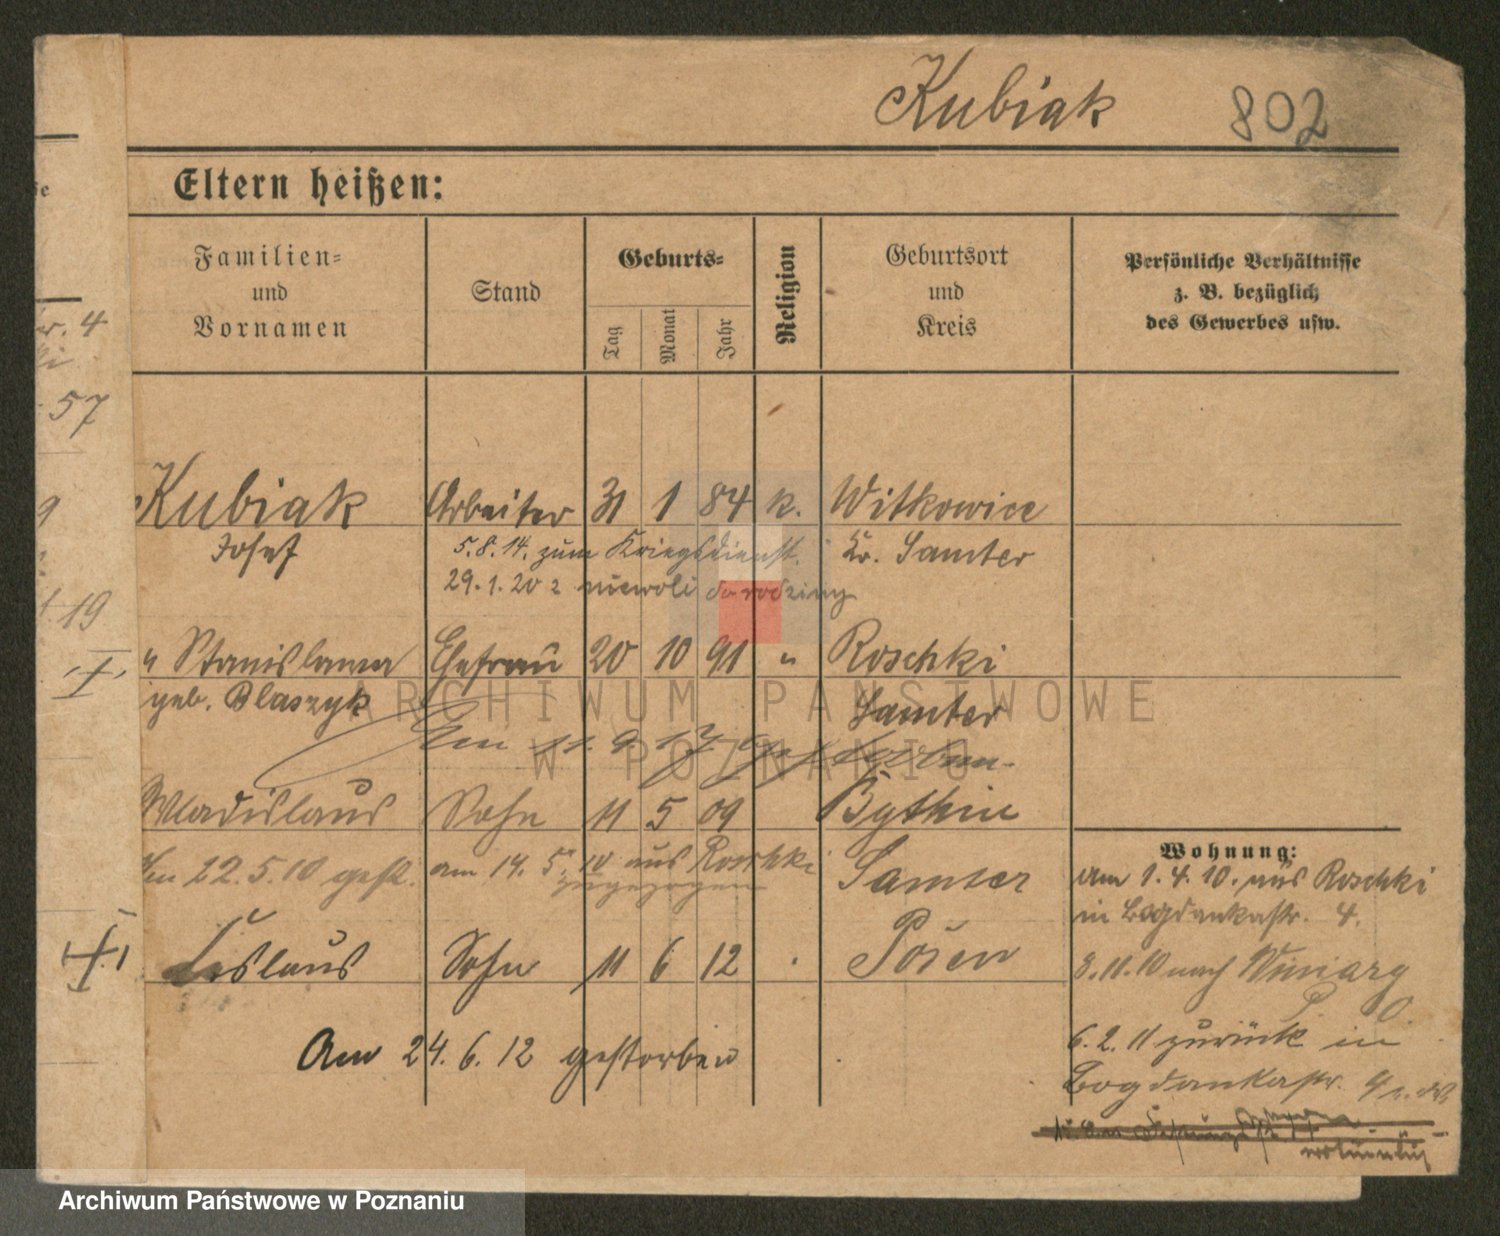 Kubiak 802
Eltern heißen:
Familien-
und
Vornamen
Stand
Geburts-
Tag
Monat
Jahr
Religion
Geburtsort
und
Kreis
Persönliche Verhältnisse
z. B. bezüglich
des Gewerbes usw.
4
57
9
19
Kubiak Arbeiter 31 1 84 k. Witkowice
Josef 5.8.14. zum Kriegsdienst. Kr. Samter
29.1.20 z niewoli do rodziny
" Stanislawa Ehefrau 20 10 91 " Roschki
geb. Blaszyk Samter
Am 11. 9. 17 gestorben.
Wladislaus Sohn 11 5 09 Bythin
Am 22.5.10 gest. am 14. 5. 10 aus Roschki Samter
zugezogen
Leslaus Sohn 11 6 12 Posen
Am 24. 6. 12 gestorben
Wohnung:
Am 1. 4. 10. aus Roschki
in Bogdankastr. 4.
8.11.10 nach Winiary
6. 2. 11 zurück in
Bogdankastr.
ARCHIWUM PAŃSTWOWE
W POZNANIU
Archiwum Państwowe w Poznaniu